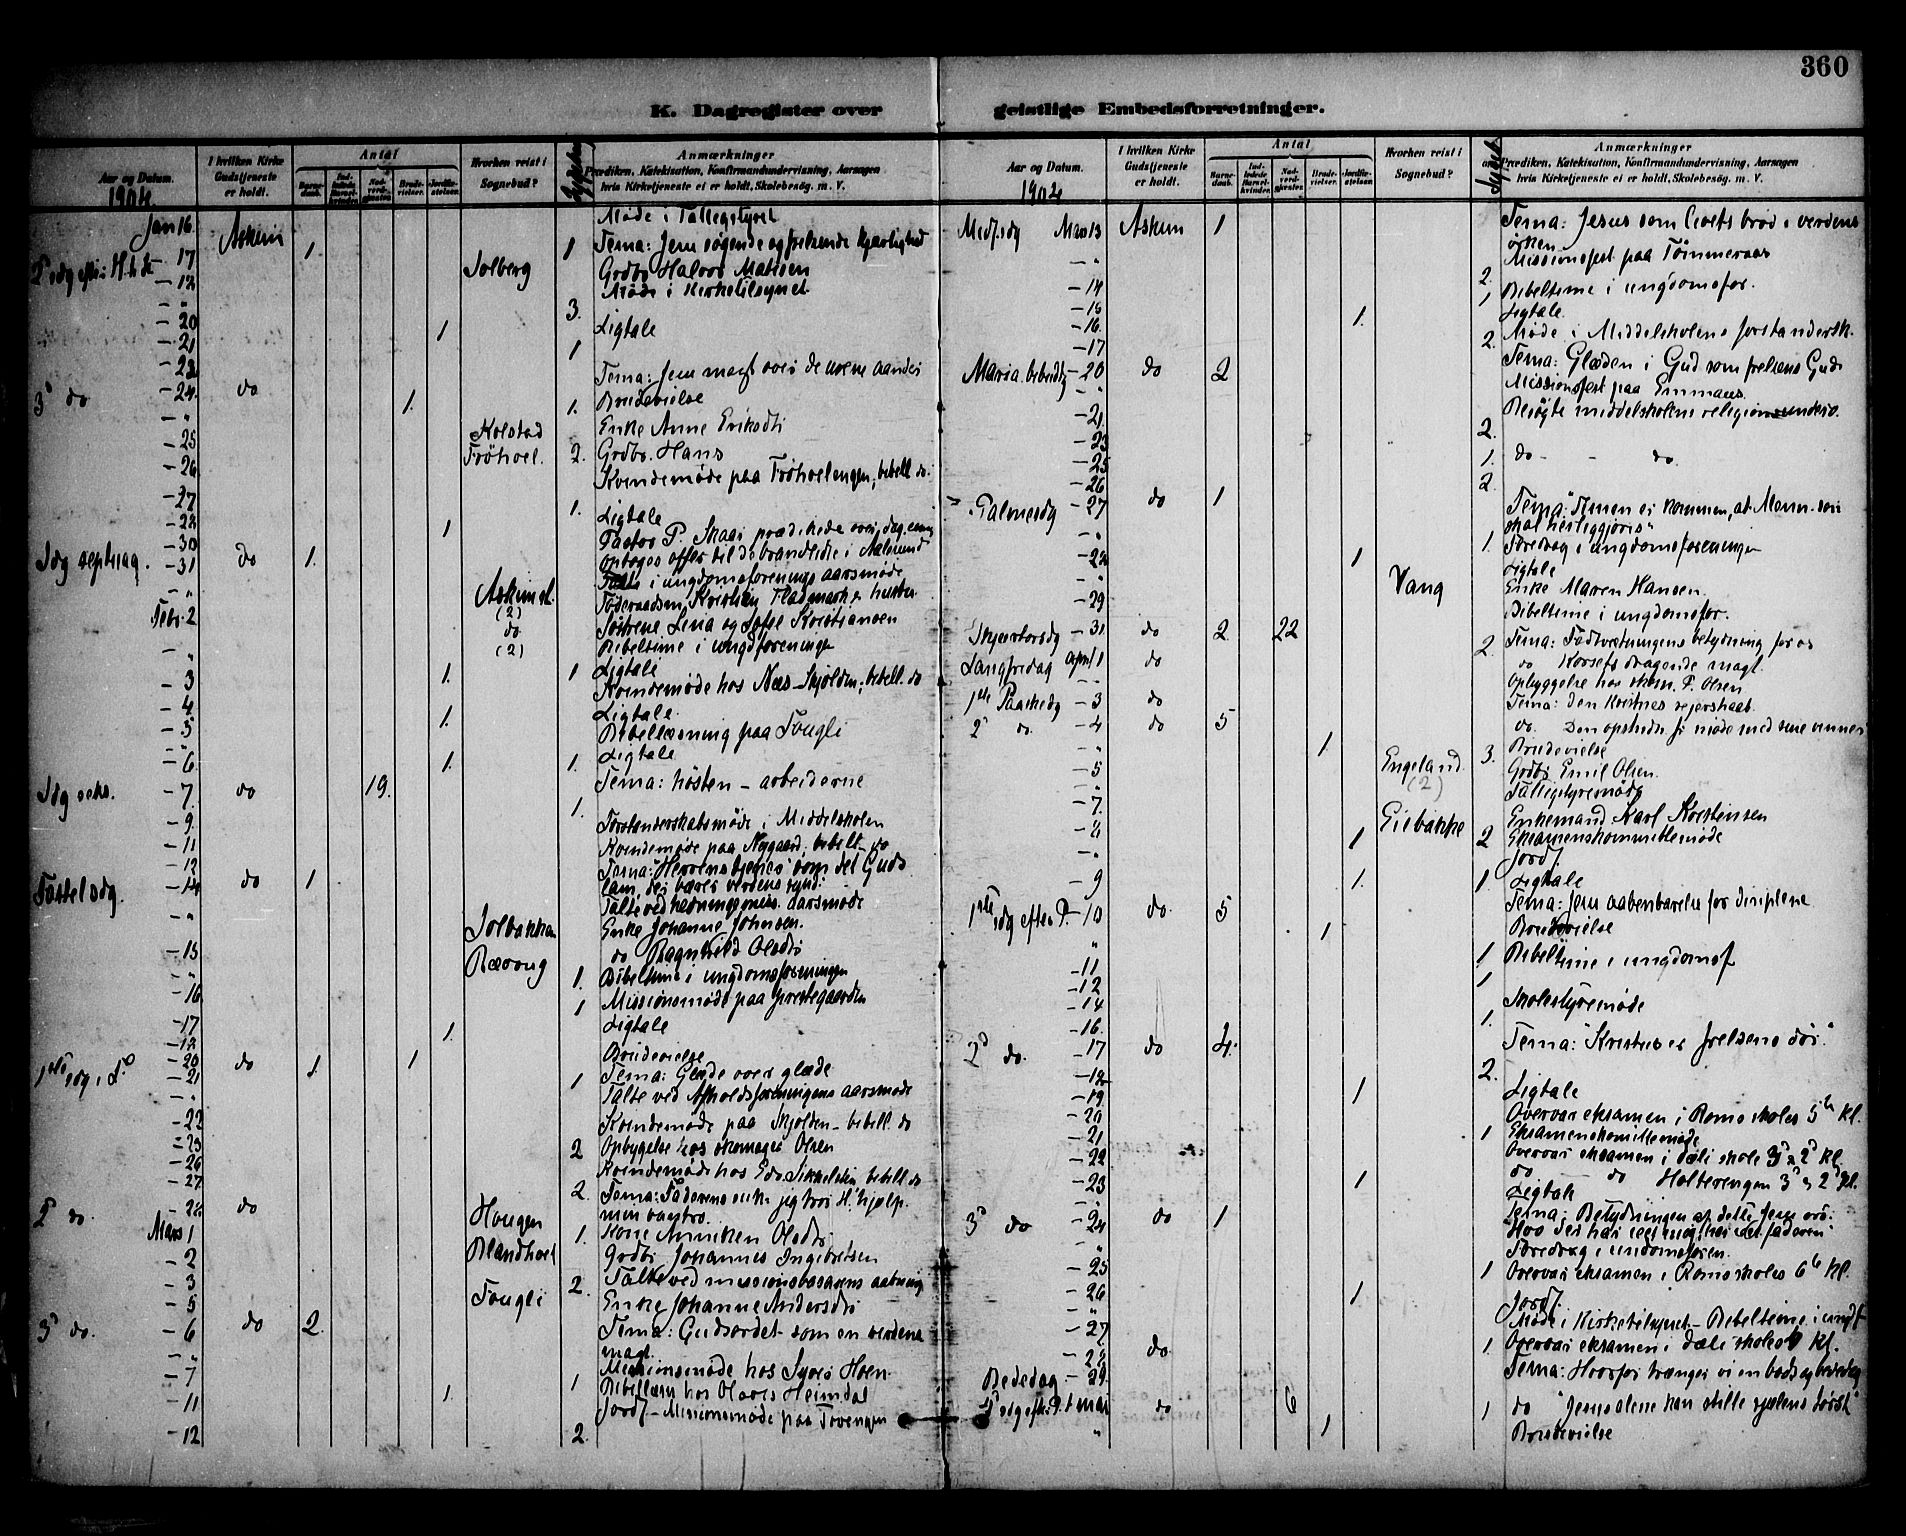 360
K. Dagregister over geistlige Embedsforretninger.
Aar og Datum. 1904.
I hvilken Kirke Gudstjeneste er holdt.
Antal
Barnedaab.
Indledede Barselkvinder.
Nadverdgjester.
Brudevielser.
Jordfæstelser.
Hvorhen reist i Sognebud?
Anmærkninger
om Prædiken, Katekisation, Konfirmandundervisning, Aarsagen hvis Kirketjeneste ei er holdt, Skolebesøg. m. V.
Jan 16. Askim Møde i Fattigstyret
2 sdg efter H. t. k. 17 1. Solberg 1 Tema: Jesu søgende og frelsende kjærlighed
Grdbr Halvor Matisen
- 18 Møde i Kirketilsynet
- 20 1. 3. Ligtale
- 21 1
- 23
3d do - 24. do 1. Tema: Jesu magt over de urene aander
- " 1. Brudevielse
- 25 Kolstad Enke Anne Eriksdtr
- 26 Frøhoel. 2. Grdbr. Hans
- 27 Kvindemøde paa Frøhoelengen, bibell. do.
- 28 1 1. Ligtale
- 30 Pastor P. Skaar prædikede over dag. evang
Sdg septuag. - 31 do 1. Opbøges offer til de brandlidte i Aalesund
- " Talte i ungdomsforenings aarsmøde
Febr. 2 Askim st. (2) Føderaadsm. Kristian Fladmark & hustru
do (2) Søstrene Lina og Sofie Kristiansen
- " Bibeltime i ungdforeningen
- 3 1. 1 Ligtale
- 4 Kvindemøde hos Næs-Skjolden; bibell. do
- 5 1. Ligtale.
- " Bibellæsning paa Fougli
- 6 1. 1. Ligtale
Sdg seks. - 7. do 19. Tema: høsten - arbeiderne
- 9. 1. Forstanderskabsmøde i Middelskolen
- 11 Kvindemøde paa Nygaard, bibell. do
- 12 Tema: "Herrens tjener" som det Guds
Fastelsdg. - 14 do 1 lam, der bærer verdens synd.
- " Talte ved hedningemiss. aarsmøde
Solbakken Enke Johanne Johnsen.
- 15 Rævaug do Ragnhild Olsdtr
- " 1. Bibeltime i ungdomsforeningen
- 16 1 Missionsmøde paa prestegaarden
- 17 1. Ligtale
- 18 Brudevielse
1ste sdg i F. - 20 do 1 1 Tema: Glæde over glæde
- 21 1 Talte ved Afholdsforeningens aarsmøde
- 22 Kvindemøde paa Skjolden - bibell. do
- 23 2 Opbygelse hos skomager Olsen
- 26 Kvindemøde hos bibell. do
- 27 2. Tema: Fader jeg tror H. hjælp
2d do. - 28 do min vantro.
Mars 1 Haugen 1. Kone Anniken Olsdtr
- 2 Blandhoel Grdbr Johannes Ingebretsen
- 3 2. Talte ved missionsbasarens aabning
- 5 Fougli Enke Johanne Andersdtr
3d do. - 6 do 2. Tema: Gudsordet som en verdens
- " magt.
- 7 1 Missionsmøde hos Syver Hoen
- 11 1 Bibellæsn hos Olaves Heimdal
- 12 2. Jordf. - Missionsmøde paa Tovengen
Aar og Datum. 1904
I hvilken Kirke Gudstjeneste er holdt.
Antal
Barnedaab.
Indledede Barselkvinder.
Nadverdgjester.
Brudevielser.
Jordfæstelser.
Hvorhen reist i Sognebud?
Anmærkninger
om Prædiken, Katekisation, Konfirmandundervisning, Aarsagen hvis Kirketjeneste ei er holdt, Skolebesøg. m. V.
Midf.sdg Mars 13 Askim 1 Tema: Jesus som livets brød i verdens
ørken.
- " Missionsfest paa Tømmeraas
- 14 2. Bibeltime i ungdomsfor.
- 15 1 Ligtale.
- 16. 1. 2. Møde i Middelskolens forstandersk.
- 17 2.
Maria bebudg - 20 do 2 Tema: Glæden i Gud som frelsens Gud
- " Missionsfest paa Emmaus.
- 21 Besøgte middelskolens religionsunderv.
- 23 2.
- 25 1. do - - do.
- 26 2.
Palmesdg - 27 do 1 Tema: "Timen er kommen, at Menn. søn
skal herliggjøres"
- " 1. Foredrag i ungdomsforeningen
- 28 1 Ligtale
- " Vang Enke Maren Hansen.
- 29 Bibeltime i ungdomsfor.
Skjærtorsdg - 31 do 2 22 2. Tema: Fodtvætningens betydning for os
Langfredag April 1 do do Korsets dragende magt.
- " Opbyggelse hos skom. P. Olsen
1ste Paaskedg - 3 do Tema: Den kristnes seiershaab.
2d do. - 4 do 5 do. Den opstandnes møde med sine venner
- " 1. 3. Brudevielse
- 5 Engeland. (2) Grdbr Emil Olsen.
- " Fattigstyremøde
- 7. Eiebakke Enkemand Karl Kristensen
- 8 1 2 Eksamenskommittemøde
- " Jordf.
- 9 1. 1. Ligtale
1ste sdg efter P. - 10 do. 5 Tema: Jesu aabenbarelse for disiplene
- " 1 Brudevielse
- 11 1 Bibeltime i ungdomsf
- 12 1
- 14 Skolestyremøde
- 16. 1.
2d do. - 17 do 4. Tema: "Kristus er frelsens dør."
- 18 2.
- 19 1 Ligtale
- 20 Overvar eksamen i Romsskoles 5te Kl.
- 21 1 Eksamenskomittemøde
- 22 Overvar eksamen i Dæli skole 3d & 2d Kl.
- 23 1 do - do Holterengen 3d & 2d Kl.
- " Ligtale
3d do - 24 do 1 Tema: Betydningen af dette Jesu ord:
"Hvo der har seet mig, har seet faderen"
- " Foredrag i undomsforen.
- 25 1 Overvar eksamen i Romsskoles 6te Kl.
- 26 1 Jordf.
- " Møde i Kirketilsynet - Bibeltime i ungdf
- 27 1. Overvar eksamen i Dæli skoles Kl.
- 28 do
Bededag - 29. Tema: Hvorfor trænger vi en bods og bededag
4d sdg eft. P. 1 mai do 6 1 do "Jesus alene kan stille sjælens tørst"
" 1 Brudevielse